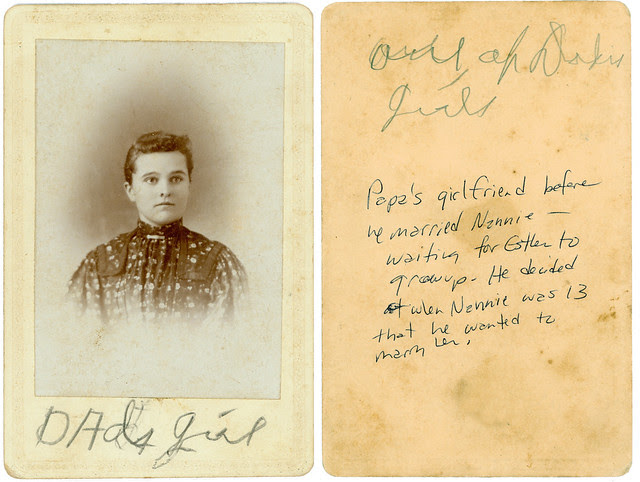 DAd's girl
one of Dads
girls
Papa's girlfriend before
he married Nannie —
waiting for Esther to
growup. He decided
when Nannie was 13
that he wanted to
marry her.